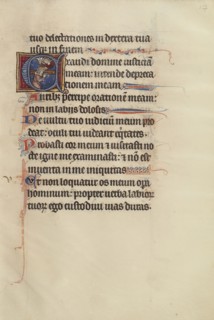 tuo delectationes in dextera tua
usq; in finem
Exaudi domine iusticiam
meam: intende depreca
tionem meam
Auribz percipe orationem meam:
non in labijs dolosis
De vultu tuo iudicium meum pro
deat: oculi tui videant equitates
Probasti cor meum & uisitasti no
cte igne me examinasti: & non est
inuenta in me iniquitas
Et non loquatur os meum opa
hominum: propter uerba labior
tuor ego custodiui uias duras.